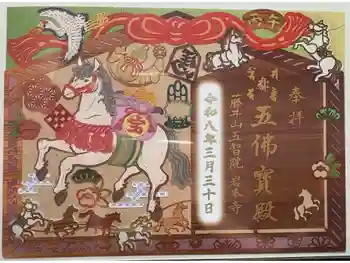 丙午
奉拝
五佛寶殿
藤井山五智院 岩本寺
令和八年三月三十日
開運